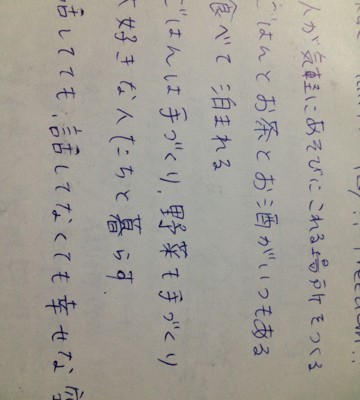 人が気軽にあそびにこれる場所をつくる
ごはんとお茶とお酒がいつもある
食べて 泊まれる
ごはんは手づくり、野菜も手づくり
大好きな人たちと暮らす
話してても、話してなくても幸せな空